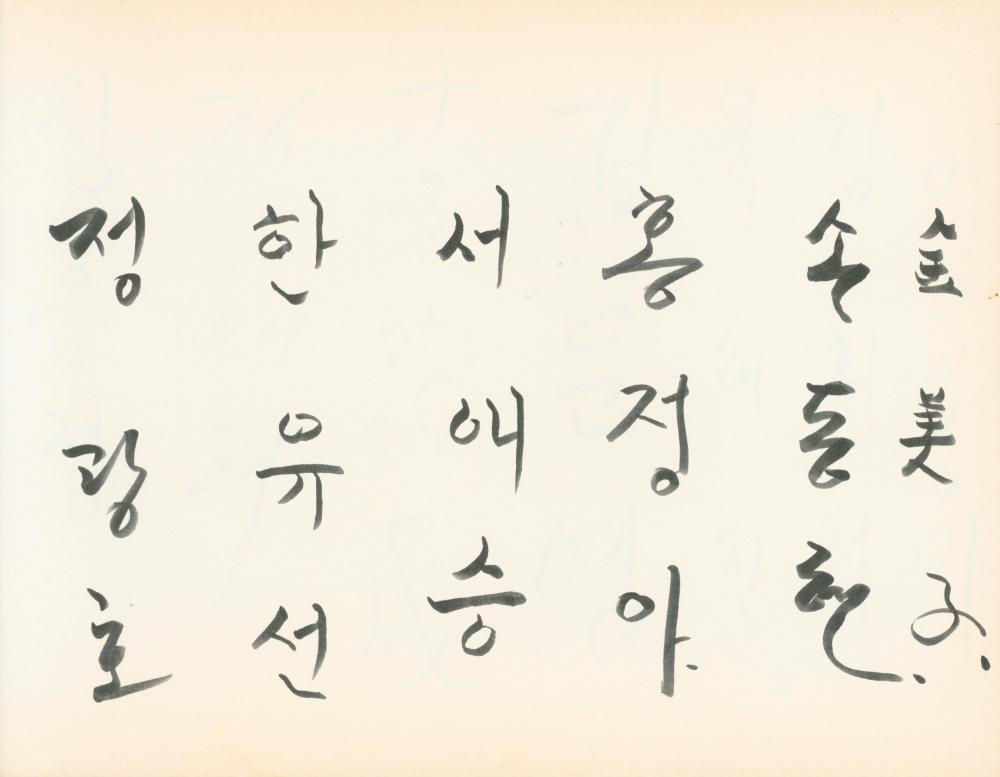 金美子.
손동헌.
홍정야.
서애승
한유선
정광호